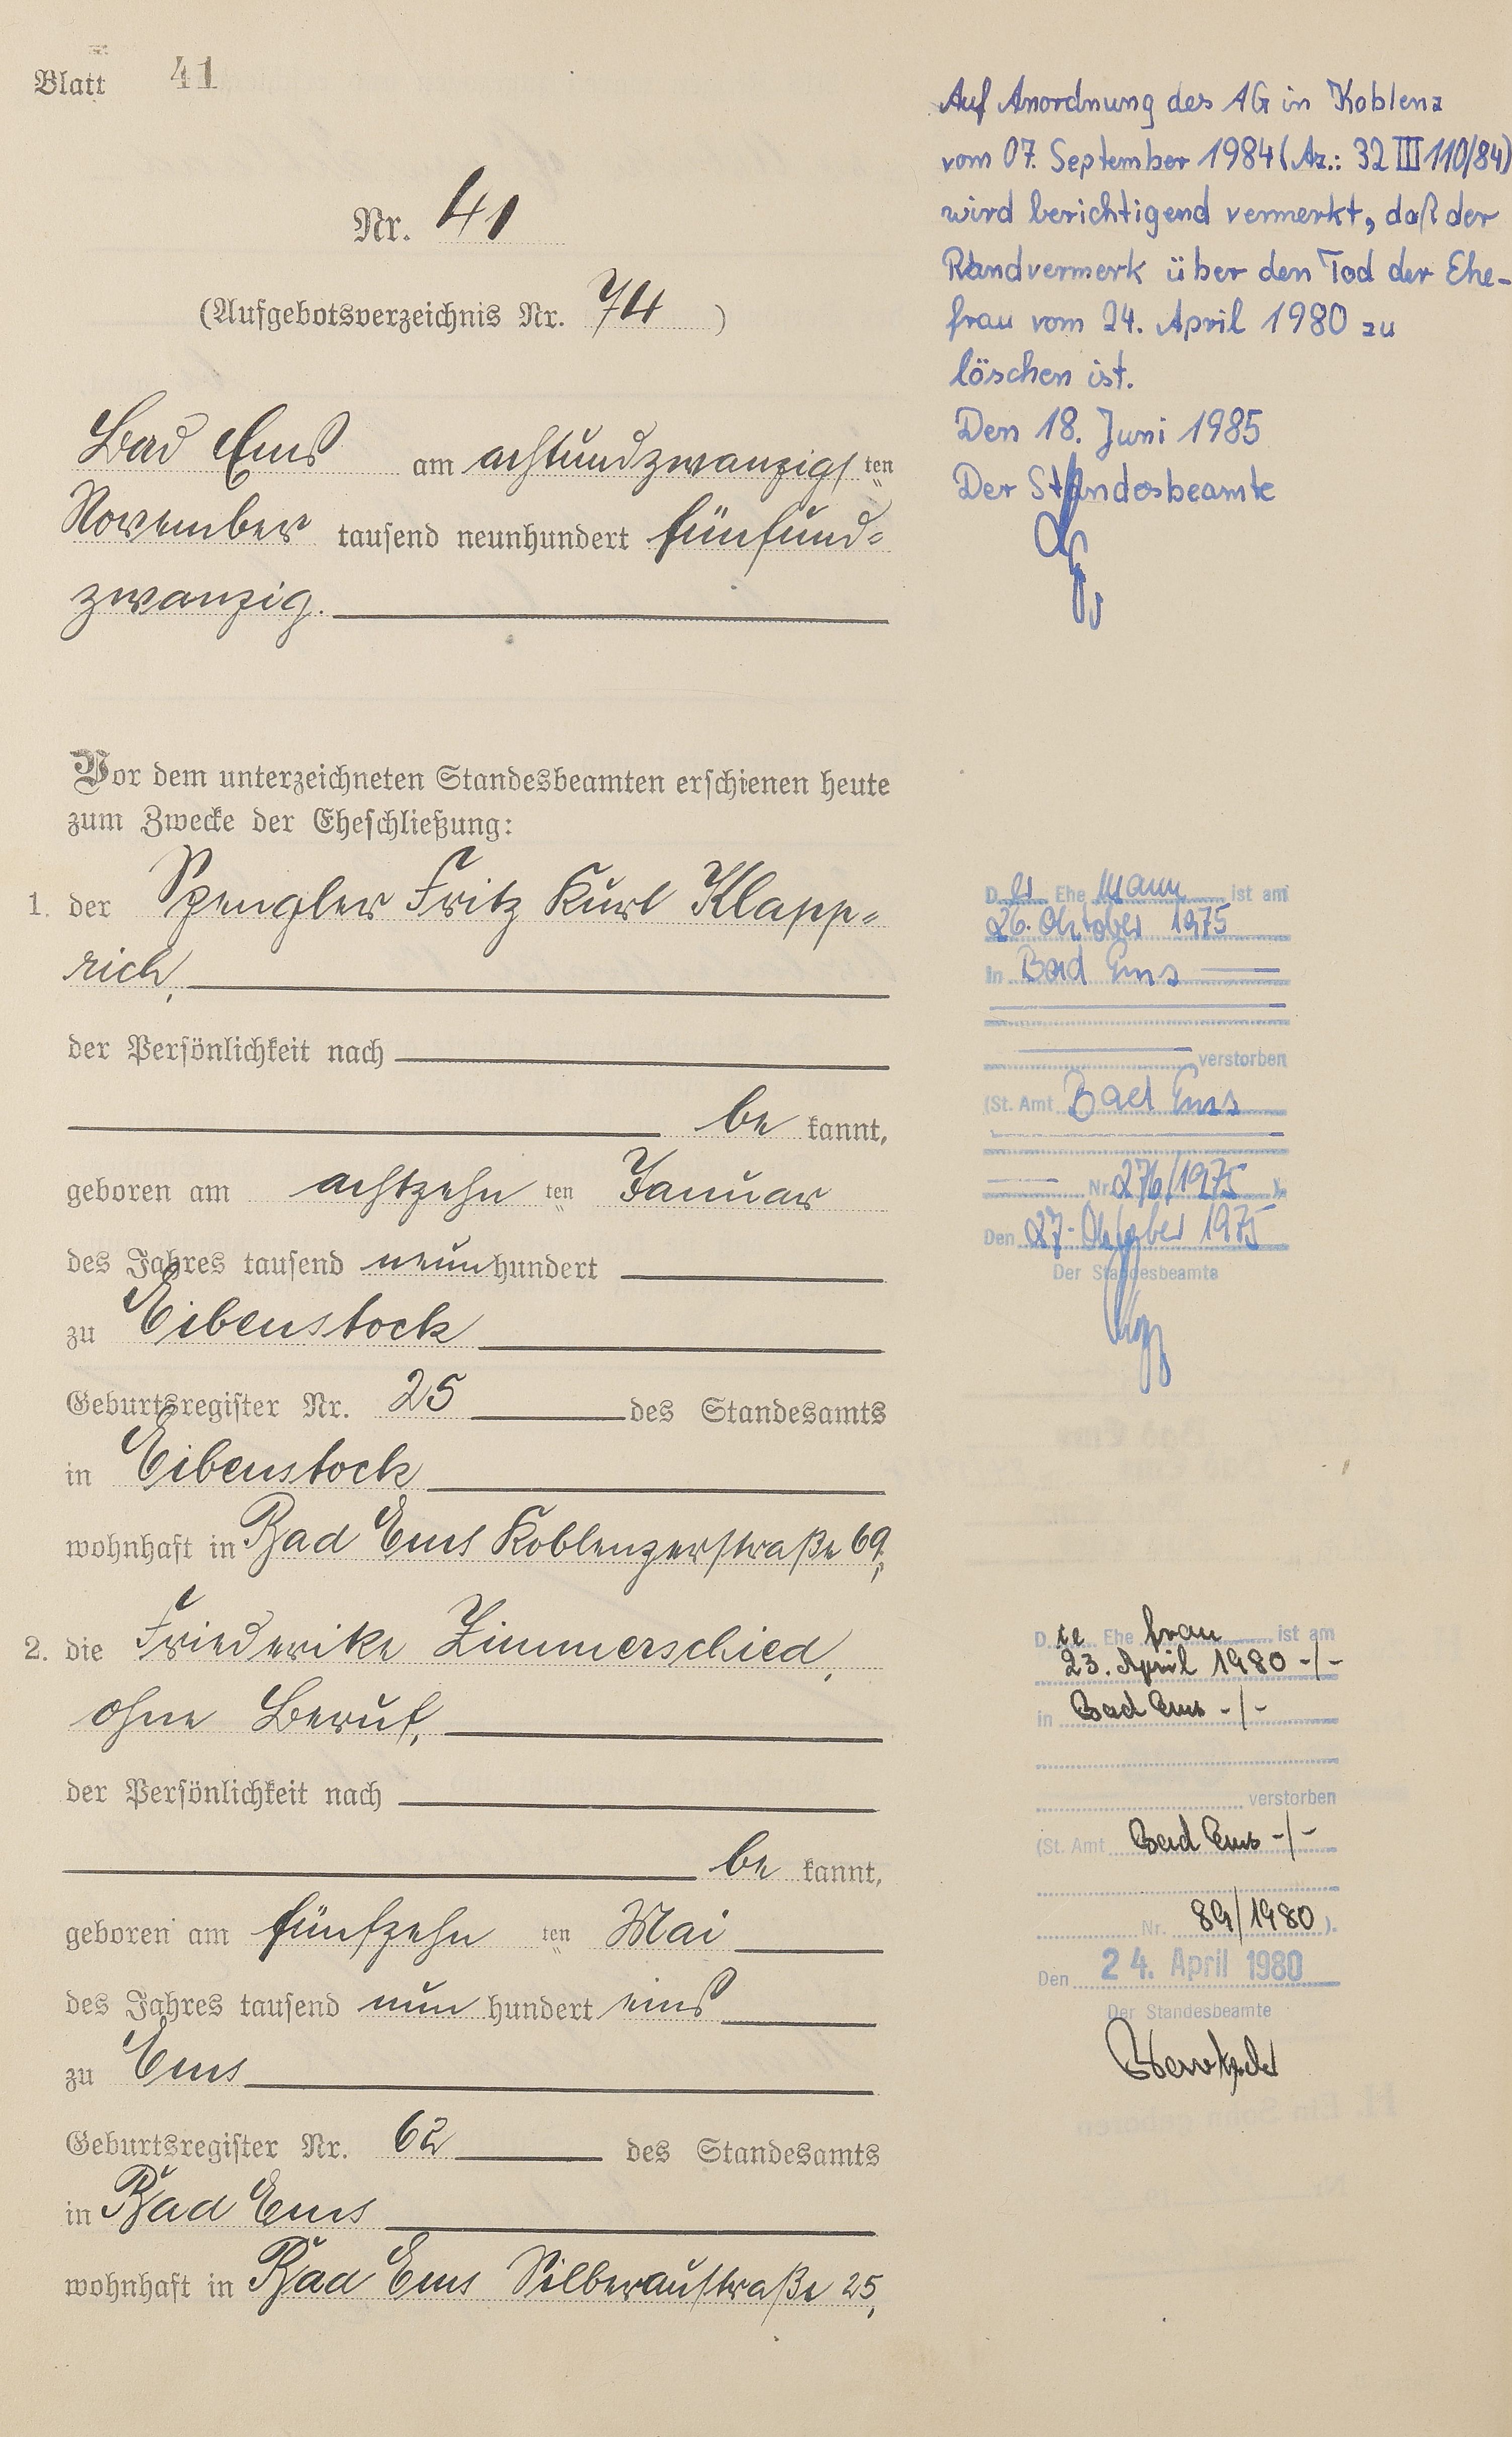 Blatt 41
Nr. 41
(Aufgebotsverzeichnis Nr. 74 )
Bad Ems am achtundzwanzigsten
November tausend neunhundert fünfund=
zwanzig.
Vor dem unterzeichneten Standesbeamten erschienen heute
zum Zwecke der Eheschließung:
1. der Spengler Fritz Kurt Klapp=
rich,
der Persönlichkeit nach
be kannt,
geboren am achtzehn ten Januar
des Jahres tausend neun hundert
zu Eibenstock
Geburtsregister Nr. 25 des Standesamts
in Eibenstock
wohnhaft in Bad Ems Koblenzerstraße 69,
2. die Friederike Zimmerschied,
ohne Beruf,
der Persönlichkeit nach
be kannt,
geboren am fünfzehn ten Mai
des Jahres tausend neun hundert eins
zu Ems
Geburtsregister Nr. 62 des Standesamts
in Bad Ems
wohnhaft in Bad Ems Silberaustraße 25,
Auf Anordnung des AG in Koblenz
vom 07. September 1984 (Az.: 32 III 110/84)
wird berichtigend vermerkt, daß der
Randvermerk über den Tod der Ehe-
frau vom 24. April 1980 zu
löschen ist.
Den 18. Juni 1985
Der Standesbeamte
Der Ehe Mann ist am
26. Oktober 1975
in Bad Ems
verstorben
(St. Amt Bad Ems
Nr. 276/1975 ).
Den 27. Oktober 1975
Der Standesbeamte
Die Ehe frau ist am
23. April 1980 -/-
in Bad Ems -/-
verstorben
(St. Amt Bad Ems -/-
Nr. 89/1980 ).
Den 24. April 1980
Der Standesbeamte